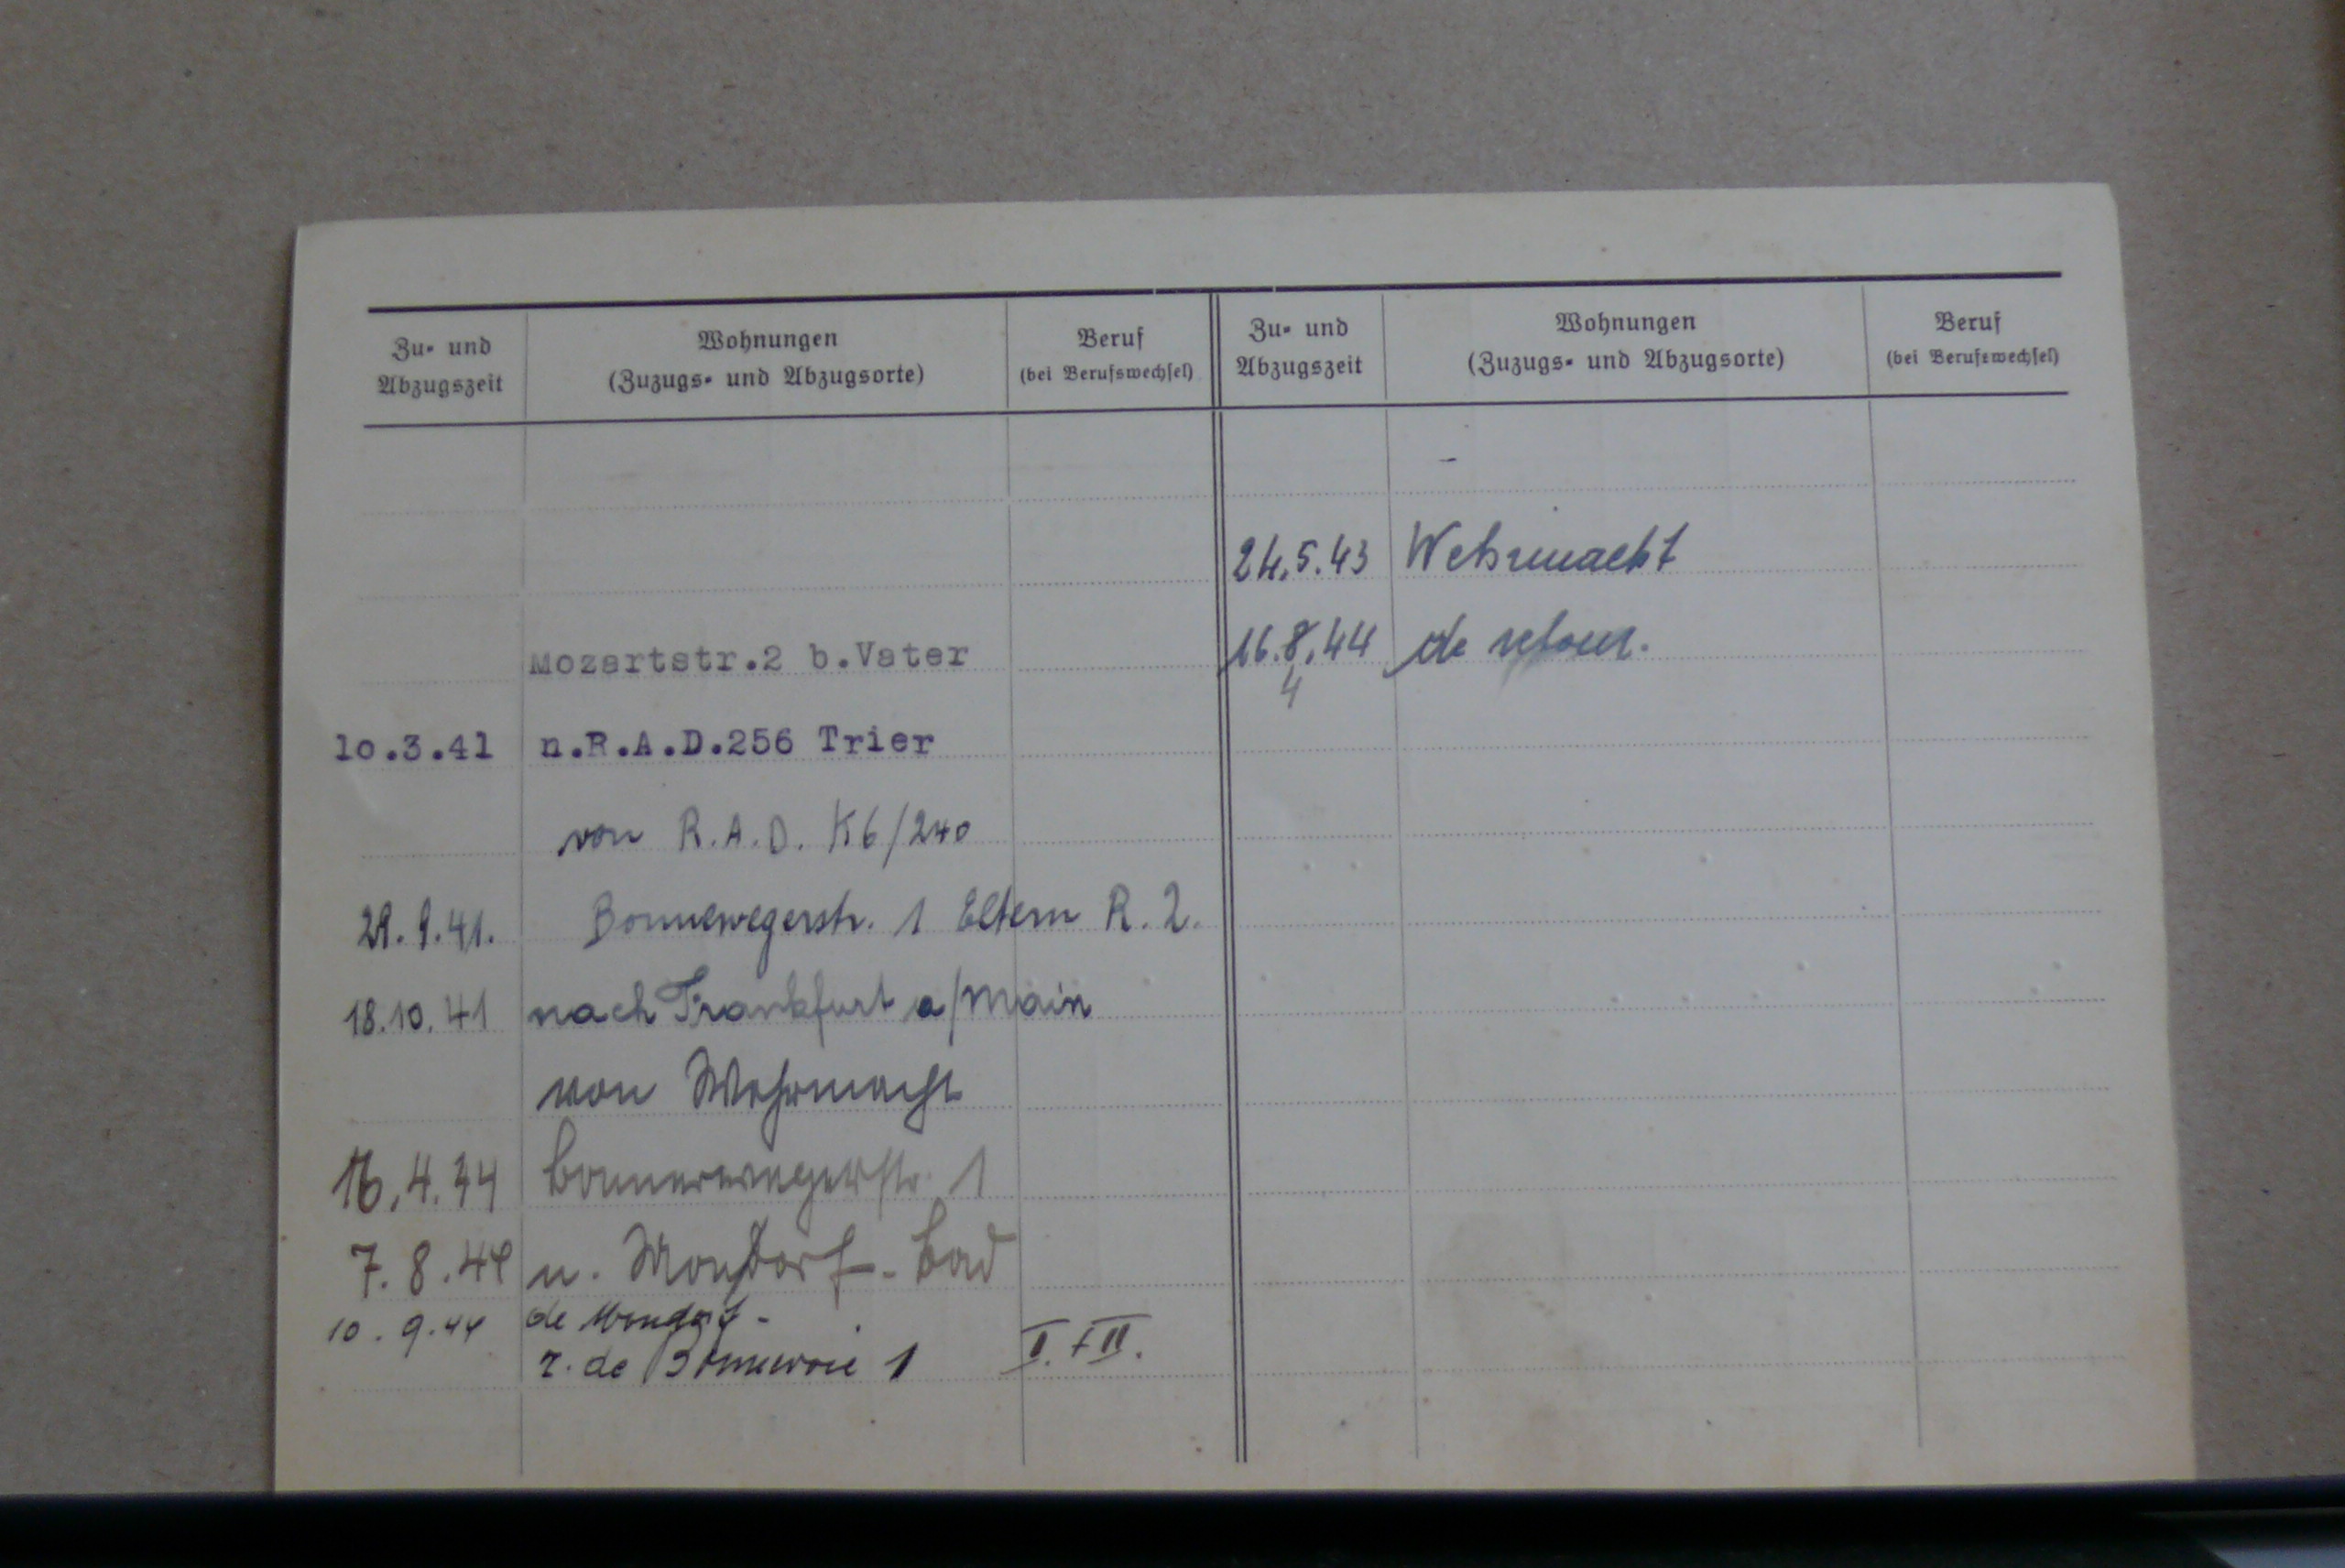 Zu- und Abzugszeit
Wohnungen (Zuzugs- und Abzugsorte)
Beruf (bei Berufswechsel)
Zu- und Abzugszeit
Wohnungen (Zuzugs- und Abzugsorte)
Beruf (bei Berufswechsel)
Mozartstr.2 b.Vater
10.3.41 n.R.A.D.256 Trier
von R.A.D. K6/240
29.9.41. Bonnewegerstr. 1 Eltern R. 2.
18.10.41 nach Frankfurt a/Main
von Wehrmacht
16.4.44 Bonnerwegerstr. 1
7.8.44 n. Mondorf-Bad
10.9.44 de Mondorf-
r. de Bonnevoie 1 I. + II.
24.5.43 Wehrmacht
16.8.44 de retour.
4